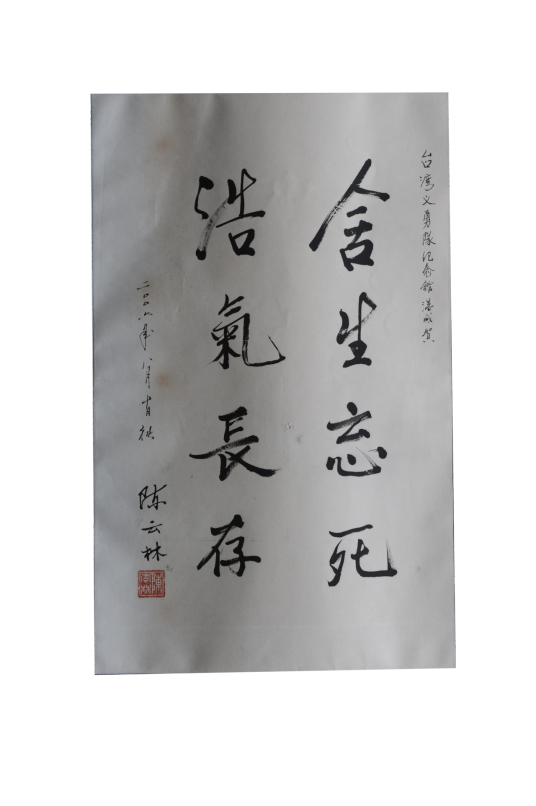 台湾义勇隊纪念馆落成贺
舍生忘死
浩氣長存
二〇〇六年八月
陈云林